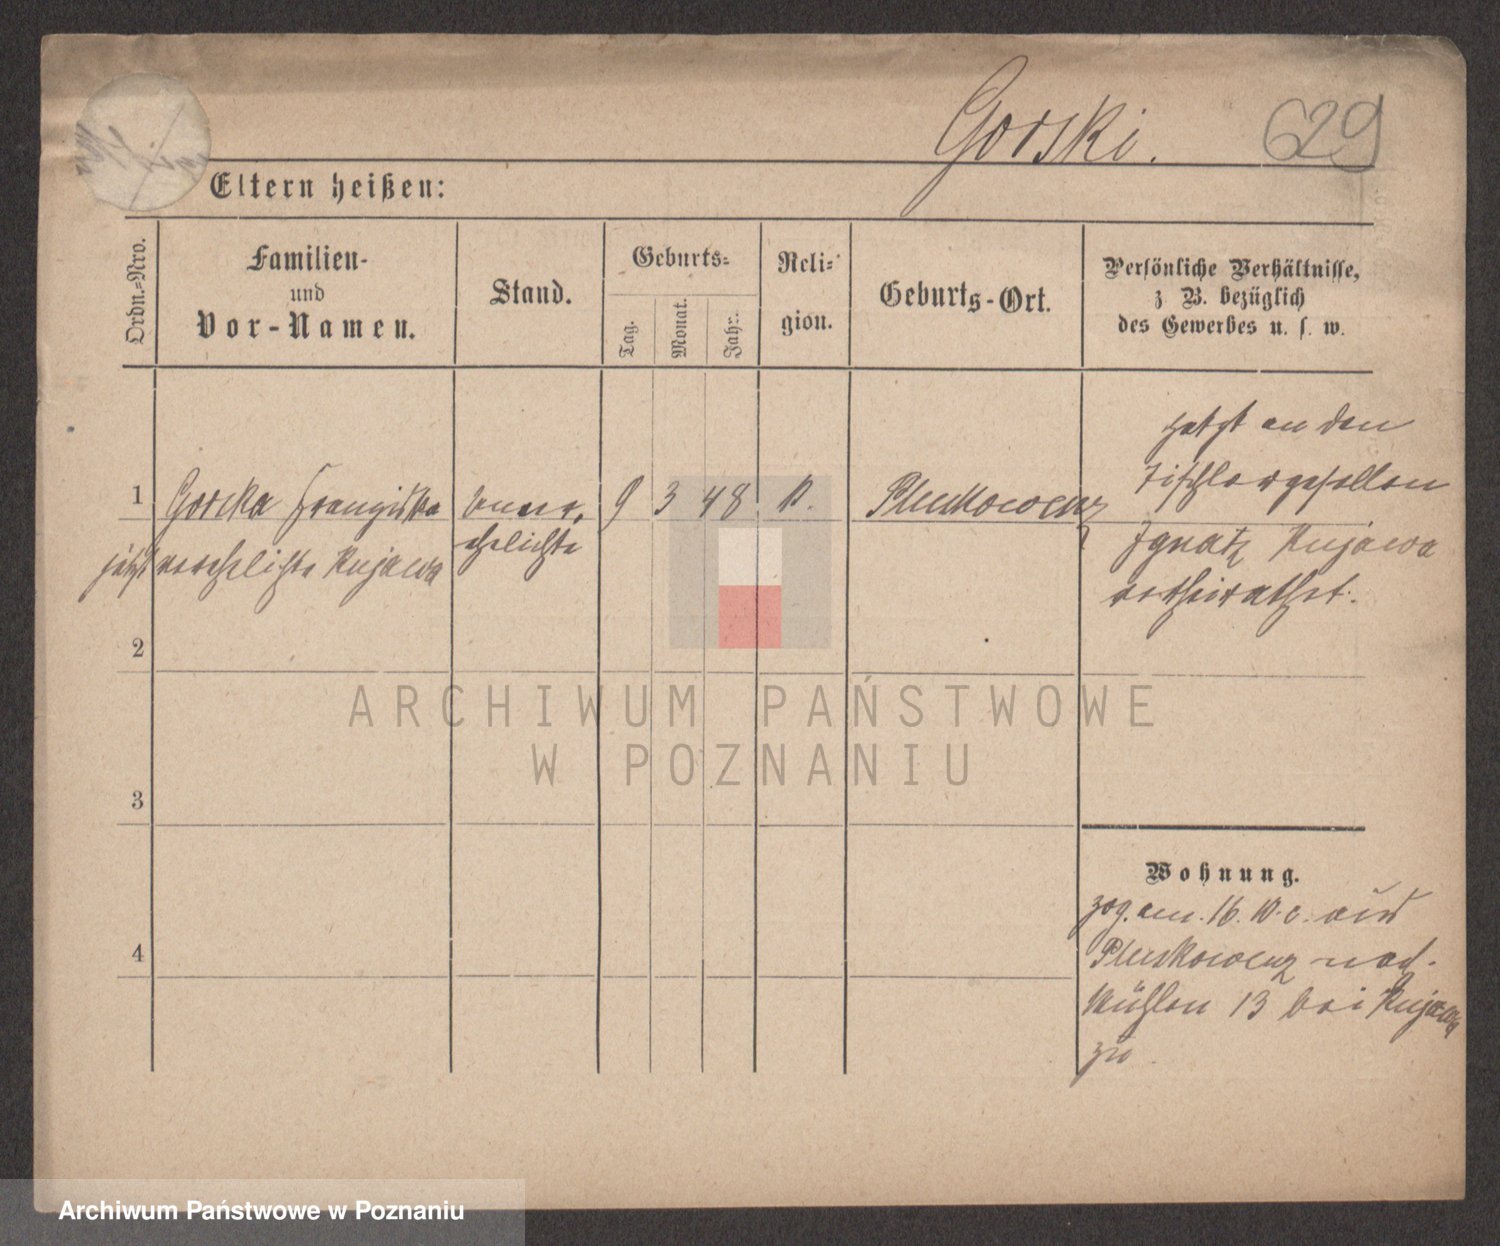 Gorski.
629
Eltern heißen:
Ordn.=Nro.
Familien-
und
Vor-Namen.
Stand.
Geburts=
Tag.
Monat.
Jahr.
Reli=
gion.
Geburts-Ort.
Persönliche Verhältnisse,
z B. bezüglich
des Gewerbes u. s. w.
jetzt an den
Tischlergesellen
1 Gorska Franziska unver, 9 3 48 K. Pluskowenz
jetzt verehelichte Kujawa ehelichte
Ignatz Kujawa
verheirathet.
2
3
4
ARCHIWUM PAŃSTWOWE
W POZNANIU
Wohnung.
zog. am. 16. 10. c. aus
Pluskowenz nach
Mühlen 13 bei Kujawa
zu
Archiwum Państwowe w Poznaniu